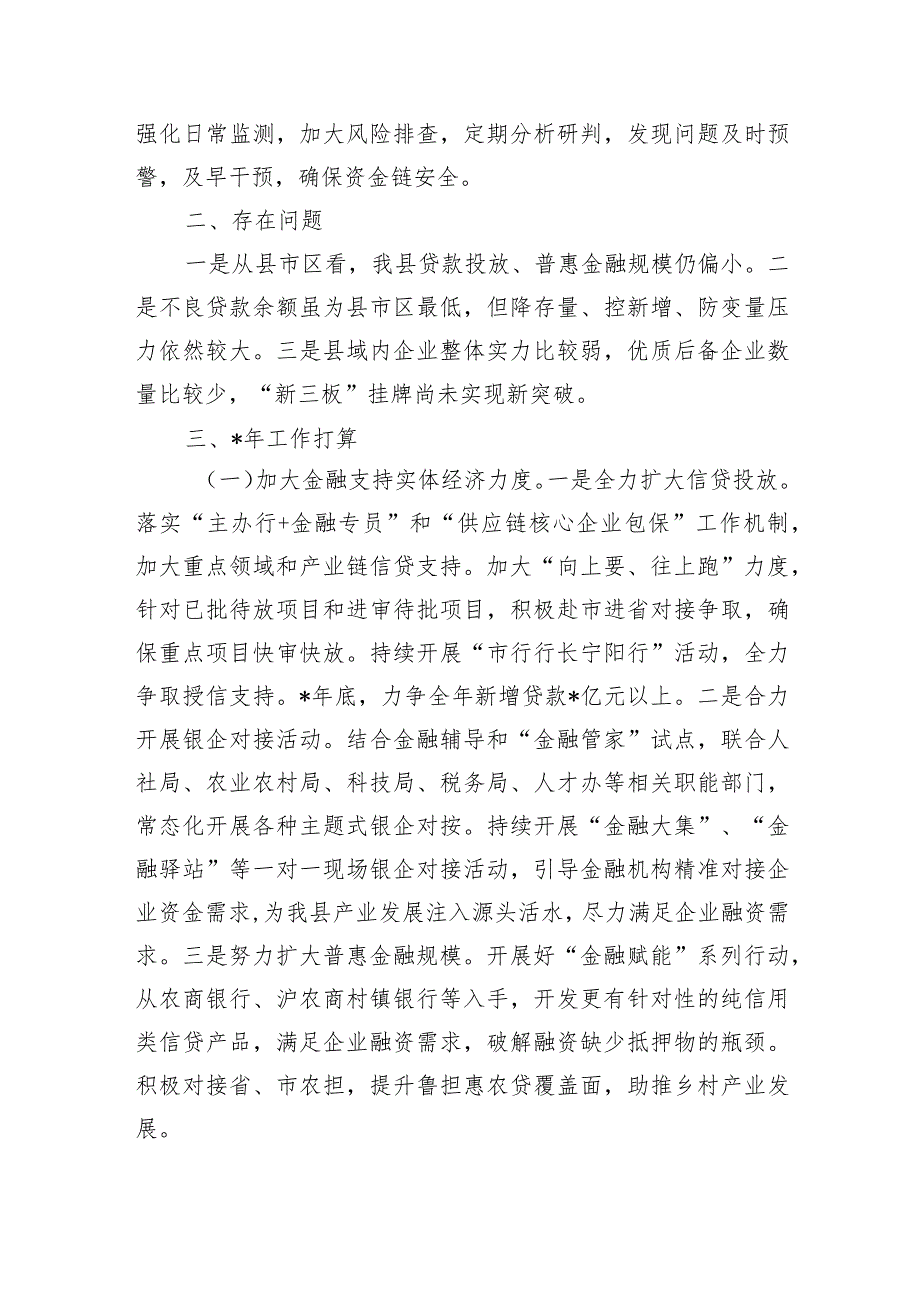 强化日常监测，加大风险排查，定期分析研判，发现问题及时预
警，及早干预，确保资金链安全。
二、存在问题
一是从县市区看，我县贷款投放、普惠金融规模仍偏小。二
是不良贷款余额虽为县市区最低，但降存量、控新增、防变量压
力依然较大。三是县域内企业整体实力比较弱，优质后备企业数
量比较少，“新三板”挂牌尚未实现新突破。
三、*年工作打算
（一）加大金融支持实体经济力度。一是全力扩大信贷投放。
落实“主办行+金融专员”和“供应链核心企业包保”工作机制，
加大重点领域和产业链信贷支持。加大“向上要、往上跑”力度，
针对已批待放项目和进审待批项目，积极赴市进省对接争取，确
保重点项目快审快放。持续开展“市行行长宁阳行”活动，全力
争取授信支持。*年底，力争全年新增贷款*亿元以上。二是合力
开展银企对接活动。结合金融辅导和“金融管家”试点，联合人
社局、农业农村局、科技局、税务局、人才办等相关职能部门，
常态化开展各种主题式银企对按。持续开展“金融大集”、“金
融驿站”等一对一现场银企对接活动，引导金融机构精准对接企
业资金需求,为我县产业发展注入源头活水，尽力满足企业融资需
求。三是努力扩大普惠金融规模。开展好“金融赋能”系列行动，
从农商银行、沪农商村镇银行等入手，开发更有针对性的纯信用
类信贷产品，满足企业融资需求，破解融资缺少抵押物的瓶颈。
积极对接省、市农担，提升鲁担惠农贷覆盖面，助推乡村产业发
展。